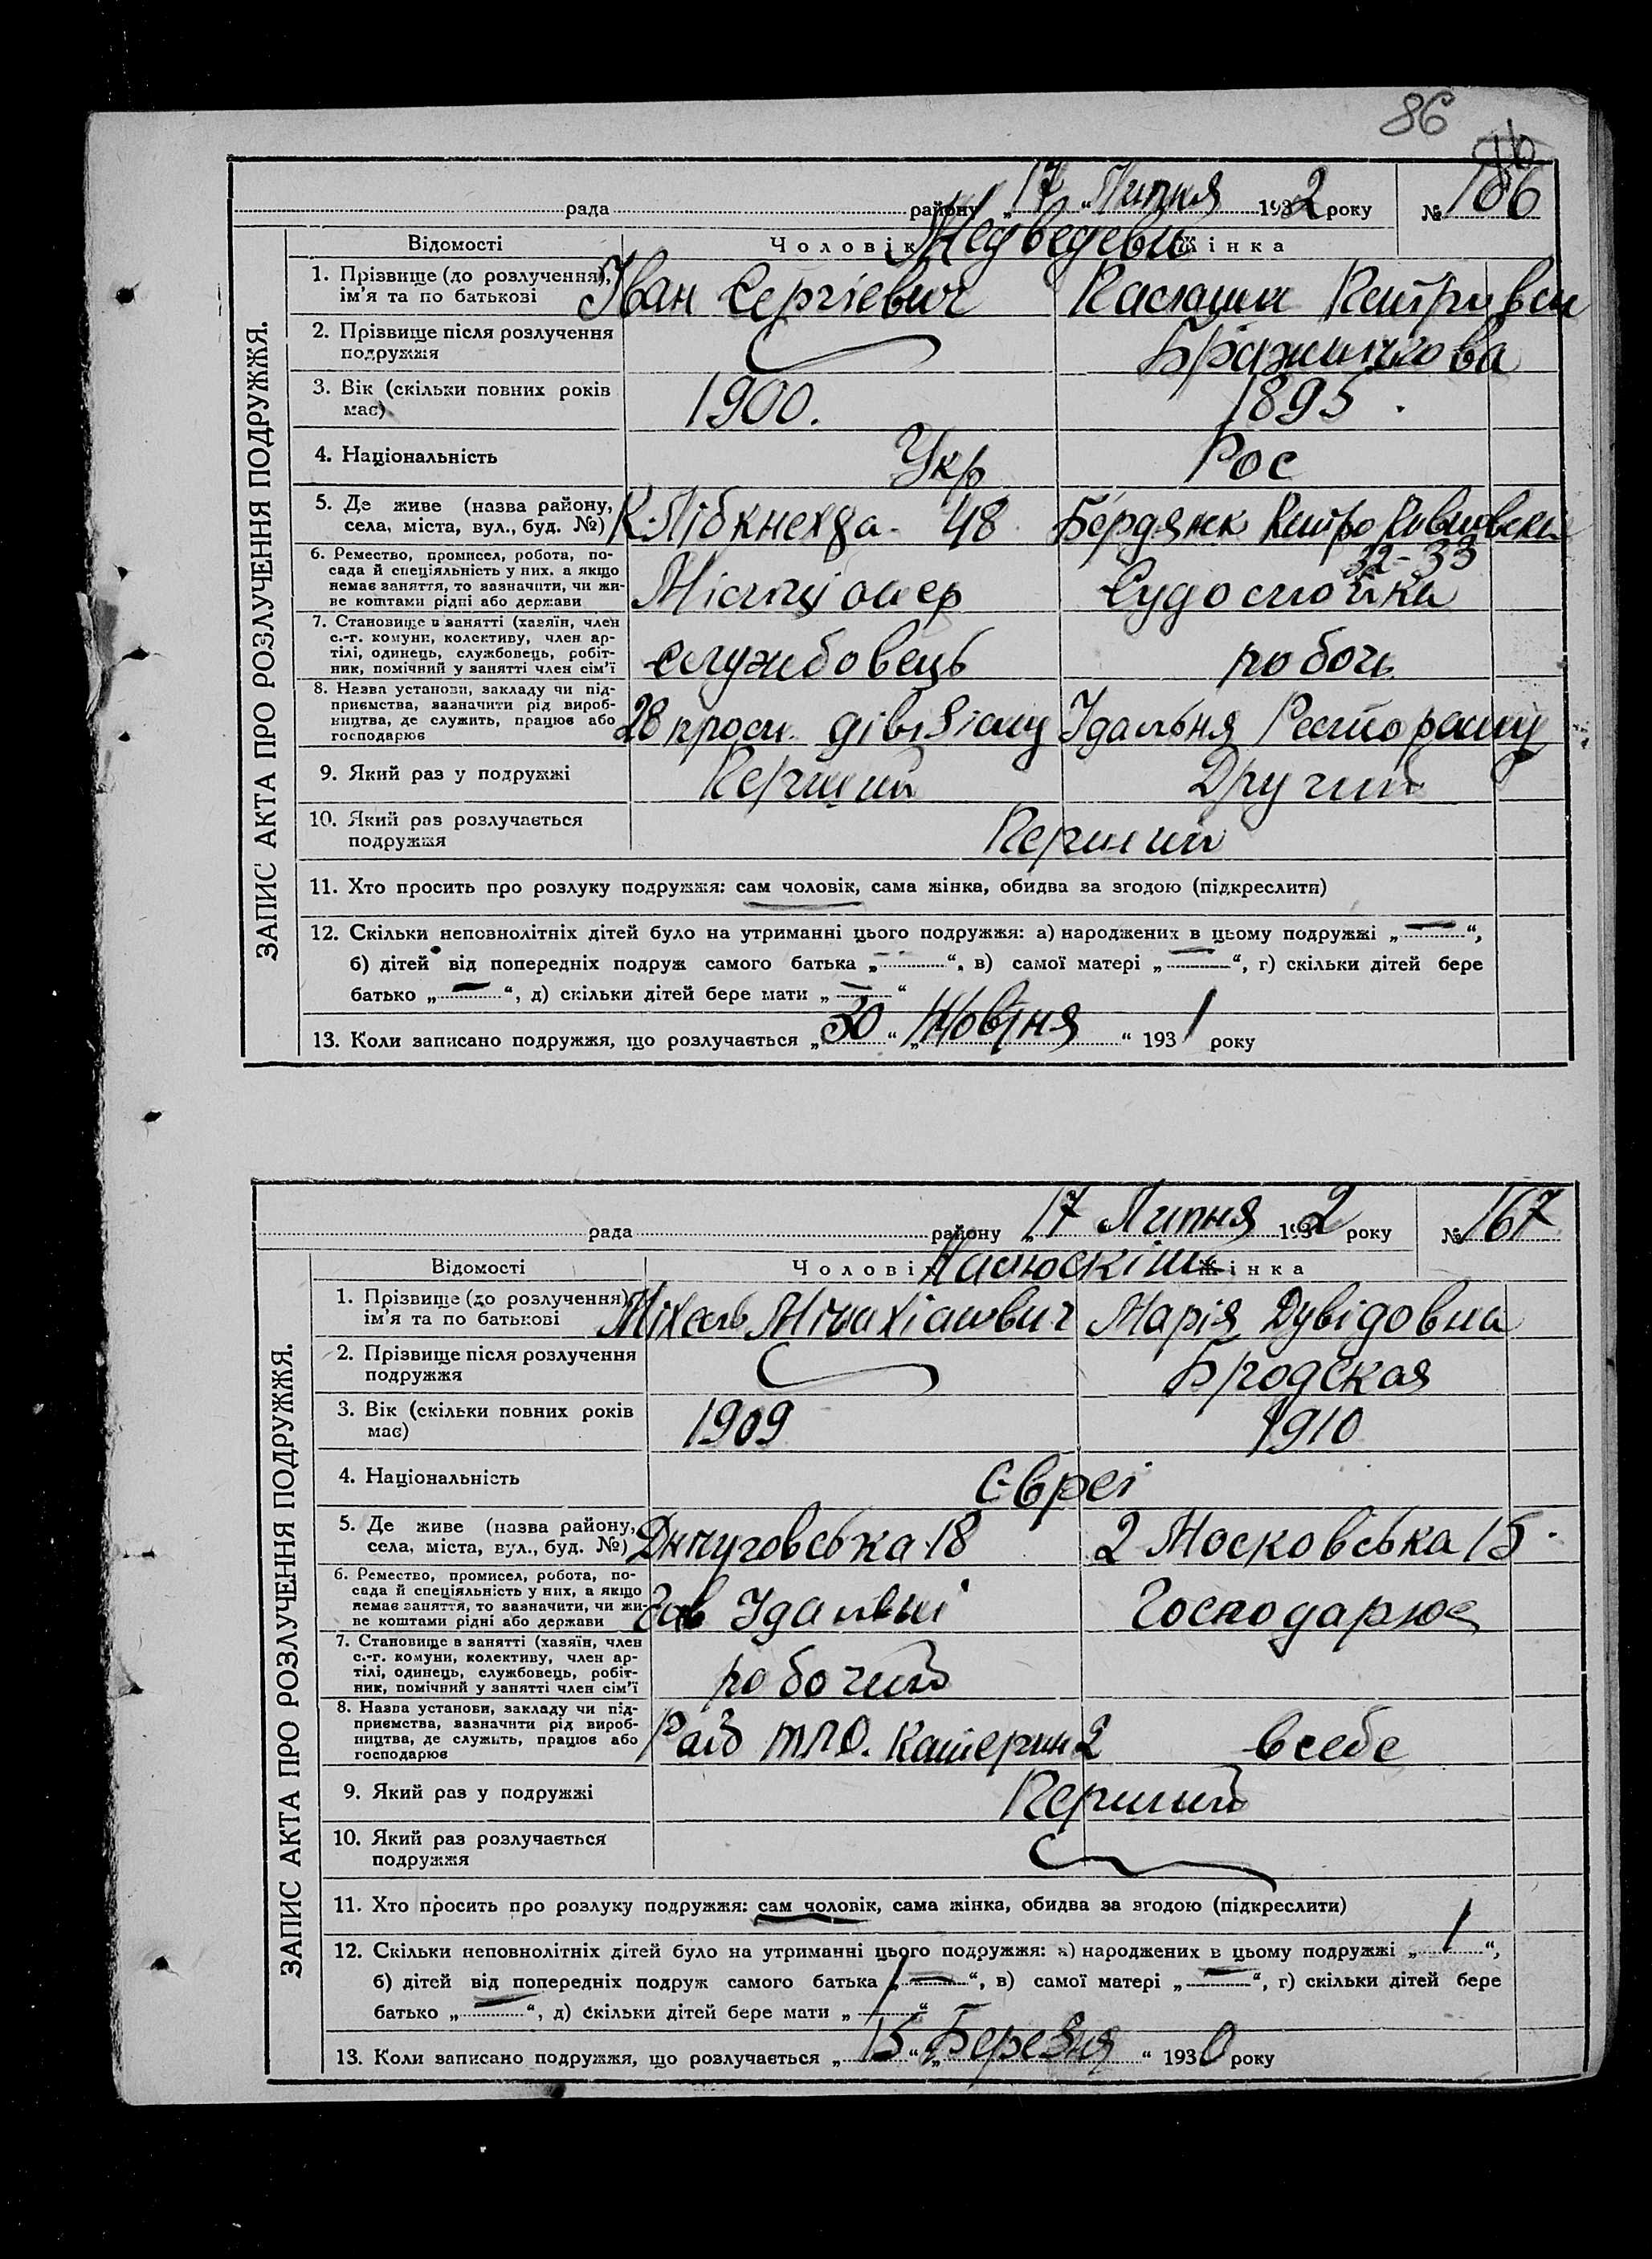 86
рада района „17 „ Липня 1932 року № 166
Відомості Чоловік Жінка
Медведеви
1. Прізвище (до розлучення), Іван Сергієвич
ім'я та по батькові
2. Прізвище після розлучення
подружжя
3. Вік (скільки повних років 1900. 1895.
має)
4. Національність Укр Рос
5. Де живе (назва району, К. Лібкнехда 48 Бердянск
села, міста, вул., буд. №) 32-33
6. Ремество, промисел, робота, по-
сада й спеціяльність у них, а якщо
немає заняття, то зазначити, чи жи- Міліціонер Судомойка
ве коштами рідні або держави
7. Становище в занятті (хазяїн, член
с.-г. комуни, колективу, член ар-
тілі, одинець, службовець, робіт- службовець робоч
ник, помічний у занятті член сім'ї
8. Назва установи, закладу чи під-
приємства, зазначити рід вироб-
ництва, де служить, працює або 28 пром. дівізіону Їдальня Ресторану
господарює
9. Який раз у подружжі Перший Другий
10. Який раз розлучається Перший
подружжя
11. Хто просить про розлуку подружжя: сам чоловік, сама жінка, обидва за згодою (підкреслити)
12. Скільки неповнолітніх дітей було на утриманні цього подружжя: а) народжених в цьому подружжі „—“,
б) дітей від попередніх подруж самого батька „—“, в) самої матері „—“, г) скільки дітей бере
батько „—“, д) скільки дітей бере мати „—“
13. Коли записано подружжя, що розлучається „30“ „Жовтня“ 1931 року
ЗАПИС АКТА ПРО РОЗЛУЧЕННЯ ПОДРУЖЖЯ.
рада району „17 „Липня 1932 року № 167
Відомості Чоловік Жінка
1. Прізвище (до розлучення), Марія Дувідовна
ім'я та по батькові
2. Прізвище після розлучення Бродская
подружжя
3. Вік (скільки повних років 1909 1910
має)
4. Національність Євреі
5. Де живе (назва району, 18 2 Московська 15
села, міста, вул., буд. №)
6. Ремество, промисел, робота, по-
сада й спеціяльність у них, а якщо
немає заняття, то зазначити, чи жи- Зав Їдальні Господарює
ве коштами рідні або держави
7. Становище в занятті (хазяїн, член
с.-г. комуни, колективу, член ар-
тілі, одинець, службовець, робіт- робочий
ник, помічний у занятті член сім'ї
8. Назва установи, закладу чи під-
приємства, зазначити рід вироб-
ництва, де служить, працює або Катерин 2 в себе
господарює
9. Який раз у подружжі Перший
10. Який раз розлучається
подружжя
11. Хто просить про розлуку подружжя: сам чоловік, сама жінка, обидва за згодою (підкреслити)
12. Скільки неповнолітніх дітей було на утриманні цього подружжя: а) народжених в цьому подружжі „1“,
б) дітей від попередніх подруж самого батька „—“, в) самої матері „—“, г) скільки дітей бере
батько „—“, д) скільки дітей бере мати „1“
13. Коли записано подружжя, що розлучається „15“ „Березня“ 1930 року
ЗАПИС АКТА ПРО РОЗЛУЧЕННЯ ПОДРУЖЖЯ.